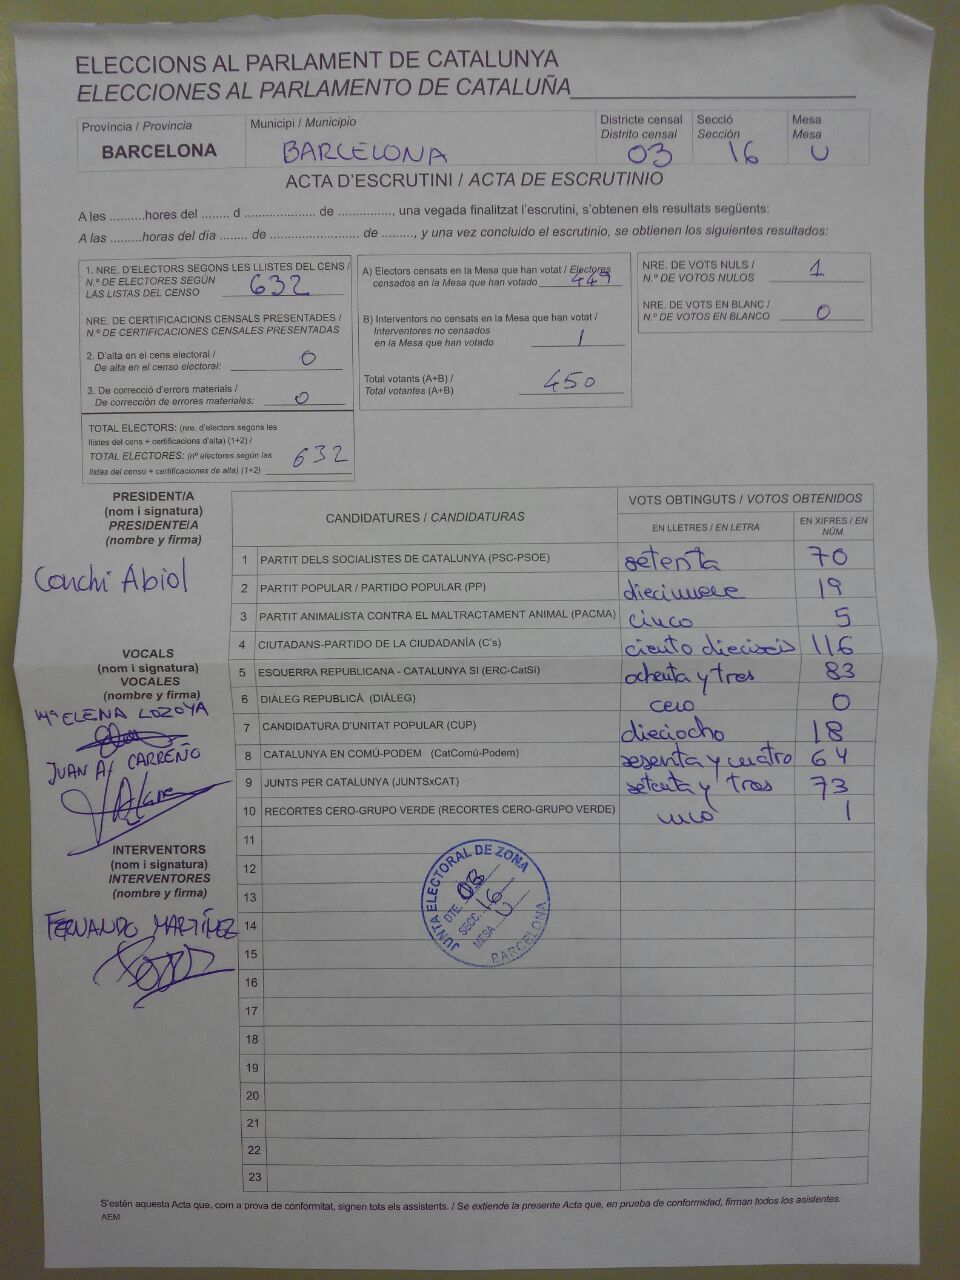 ELECCIONS AL PARLAMENT DE CATALUNYA
ELECCIONES AL PARLAMENTO DE CATALUÑA
Província / Provincia
BARCELONA
Municipi / Municipio
BARCELONA
Districte censal
Distrito censal
03
Secció
Sección
16
Mesa
Mesa
U
ACTA D'ESCRUTINI / ACTA DE ESCRUTINIO
A les ..........hores del ........ d .................... de ..............., una vegada finalitzat l'escrutini, s'obtenen els resultats següents:
A las .........horas del día ........ de .......................... de ........., y una vez concluido el escrutinio, se obtienen los siguientes resultados:
1. NRE. D'ELECTORS SEGONS LES LLISTES DEL CENS /
N.º DE ELECTORES SEGÚN
LAS LISTAS DEL CENSO 632
NRE. DE CERTIFICACIONS CENSALS PRESENTADES /
N.º DE CERTIFICACIONES CENSALES PRESENTADAS
2. D'alta en el cens electoral /
De alta en el censo electoral: 0
3. De correcció d'errors materials /
De corrección de errores materiales: 0
TOTAL ELECTORS: (nre. d'electors segons les
llistes del cens + certificacions d'alta) (1+2) /
TOTAL ELECTORES: (nº electores según las
listas del censo + certificaciones de alta) (1+2) 632
A) Electors censats en la Mesa que han votat / Electores
censados en la Mesa que han votado 449
B) Interventors no censats en la Mesa que han votat /
Interventores no censados
en la Mesa que han votado 1
Total votants (A+B) /
Total votantes (A+B) 450
NRE. DE VOTS NULS /
N.º DE VOTOS NULOS 1
NRE. DE VOTS EN BLANC /
N.º DE VOTOS EN BLANCO 0
PRESIDENT/A
(nom i signatura)
PRESIDENTE/A
(nombre y firma)
Conchi Abiol
VOCALS
(nom i signatura)
VOCALES
(nombre y firma)
Mª ELENA LOZOYA
JUAN A. CARREÑO
INTERVENTORS
(nom i signatura)
INTERVENTORES
(nombre y firma)
FERNANDO MARTÍNEZ
CANDIDATURES / CANDIDATURAS
VOTS OBTINGUTS / VOTOS OBTENIDOS
EN LLETRES / EN LETRA
EN XIFRES / EN NÚM.
1 PARTIT DELS SOCIALISTES DE CATALUNYA (PSC-PSOE) setenta 70
2 PARTIT POPULAR / PARTIDO POPULAR (PP) diecinueve 19
3 PARTIT ANIMALISTA CONTRA EL MALTRACTAMENT ANIMAL (PACMA) cinco 5
4 CIUTADANS-PARTIDO DE LA CIUDADANÍA (C's) ciento dieciseis 116
5 ESQUERRA REPUBLICANA - CATALUNYA SI (ERC-CatSí) ochenta y tres 83
6 DIÀLEG REPUBLICÀ (DIÀLEG) cero 0
7 CANDIDATURA D'UNITAT POPULAR (CUP) dieciocho 18
8 CATALUNYA EN COMÚ-PODEM (CatComú-Podem) sesenta y cuatro 64
9 JUNTS PER CATALUNYA (JUNTSxCAT) setenta y tres 73
10 RECORTES CERO-GRUPO VERDE (RECORTES CERO-GRUPO VERDE) uno 1
11
12
13
14
15
16
17
18
19
20
21
22
23
JUNTA ELECTORAL DE ZONA
DTE. 03
SECC. 16
MESA U
BARCELONA
S'estén aquesta Acta que, com a prova de conformitat, signen tots els assistents. / Se extiende la presente Acta que, en prueba de conformidad, firman todos los asistentes.
AEM